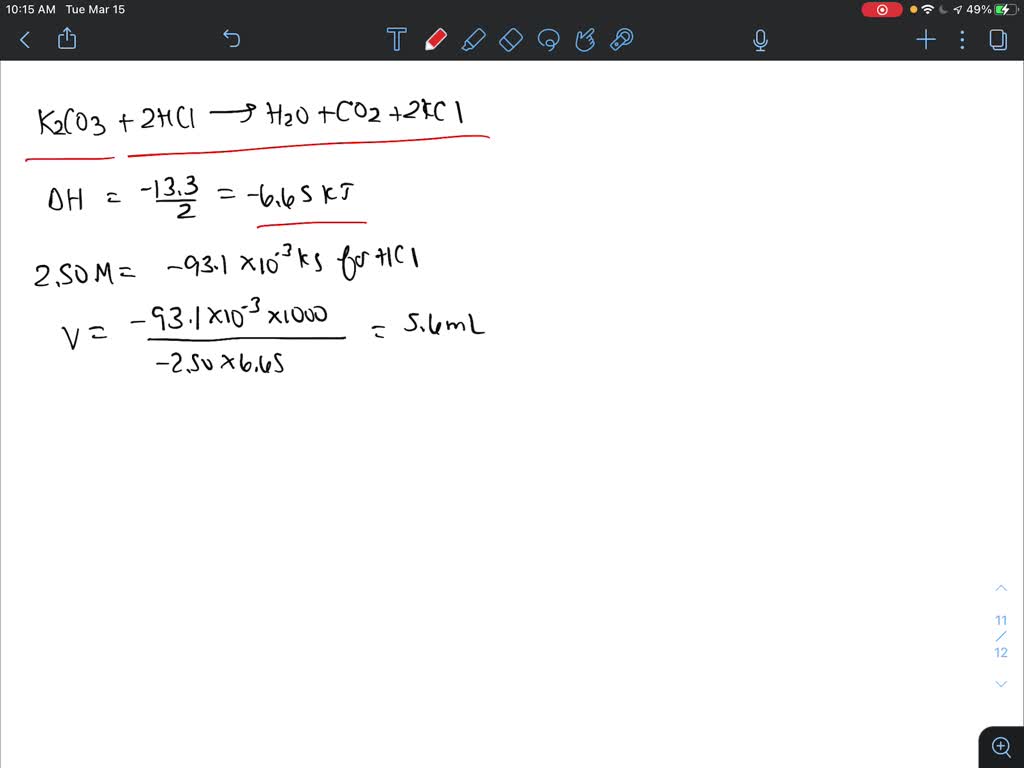 10:15 AM Tue Mar 15 49%
T
K2CO3 + 2HCl → H2O + CO2 + 2KCl
ΔH = -13.3/2 = -6.65 KJ
2.50M = -93.1 ×10^-3 KJ for HCl
V = -93.1×10^-3 ×1000 / -2.50 × 6.65 = 5.6mL
11
/
12